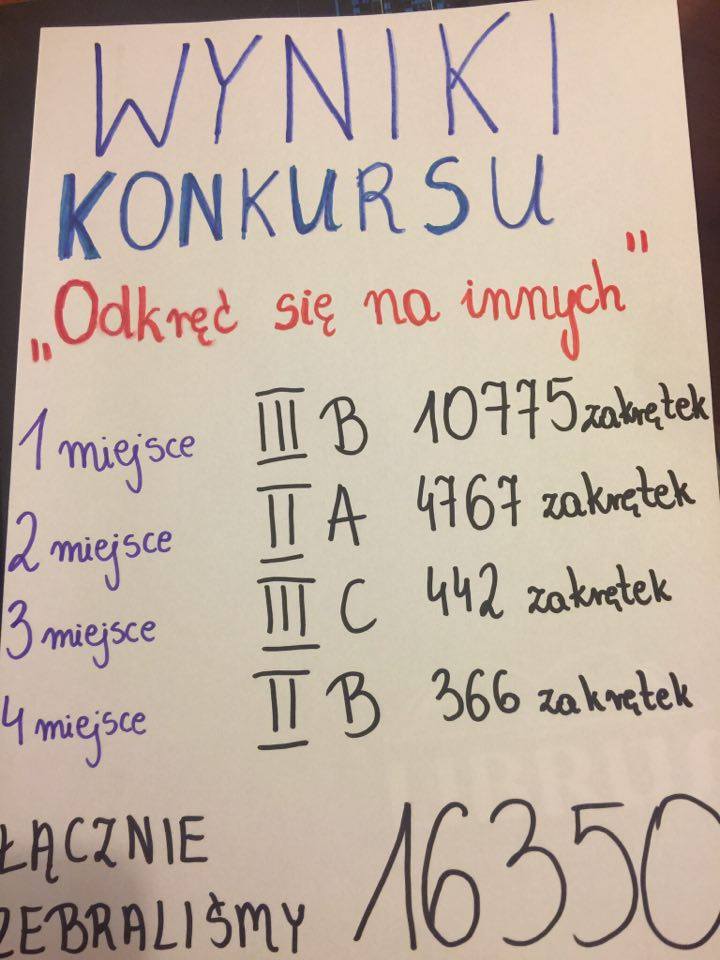 WYNIKI
KONKURSU
„Odkręć się na innych"
1 miejsce III B 10775 zakrętek
2 miejsce II A 4767 zakrętek
3 miejsce III C 442 zakrętek
4 miejsce II B 366 zakrętek
ŁĄCZNIE
ZEBRALIŚMY 16350